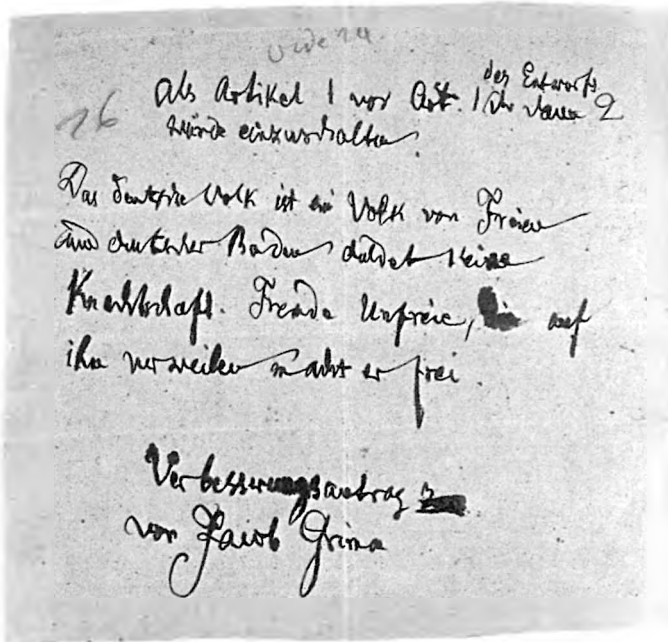 16
als Artikel 1 vor Art. 1 des Entwurfs
würde einzuschalten
Das deutsche Volk ist ein Volk von Freien
und deutscher Boden duldet keine
Knechtschaft. Fremde Unfreie, die auf
ihm verweilen macht er frei
Verbesserungsantrag
von Jacob Grimm